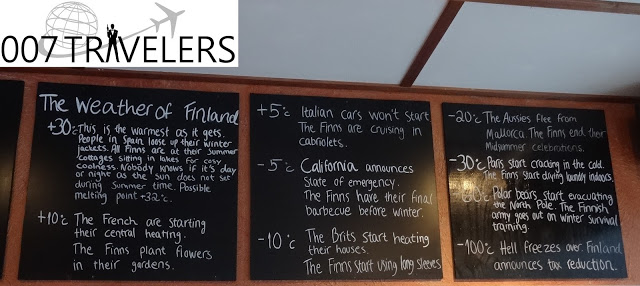 007 TRAVELERS
The Weather of Finland
+30°c This is the warmest as it gets.
People in Spain loose up their winter
jackets. All Finns are at their Summer
cottages sitting in lakes for cosy
coolness. Nobody knows if it's day
or night as the sun does not set
during Summer time. Possible
melting point +32°c.
+10°c The French are starting
their central heating.
The Finns plant flowers
in their gardens.
+5°c Italian cars won't start
The Finns are cruising in
cabriolets.
-5°c California announces
State of emergency.
The Finns have their final
barbecue before winter.
-10°c The Brits start heating
their houses.
The Finns start using long sleeves
-20°c The Aussies flee from
Mallorca. The Finns end their
Midsummer celebrations.
-30°c Paris start cracking in the cold.
The Finns start drying laundry indoors.
Polar bears start evacuating
the North Pole. The Finnish
army goes out on winter Survival
training.
-100°c Hell freezes over. Finland
announces tax reduction.